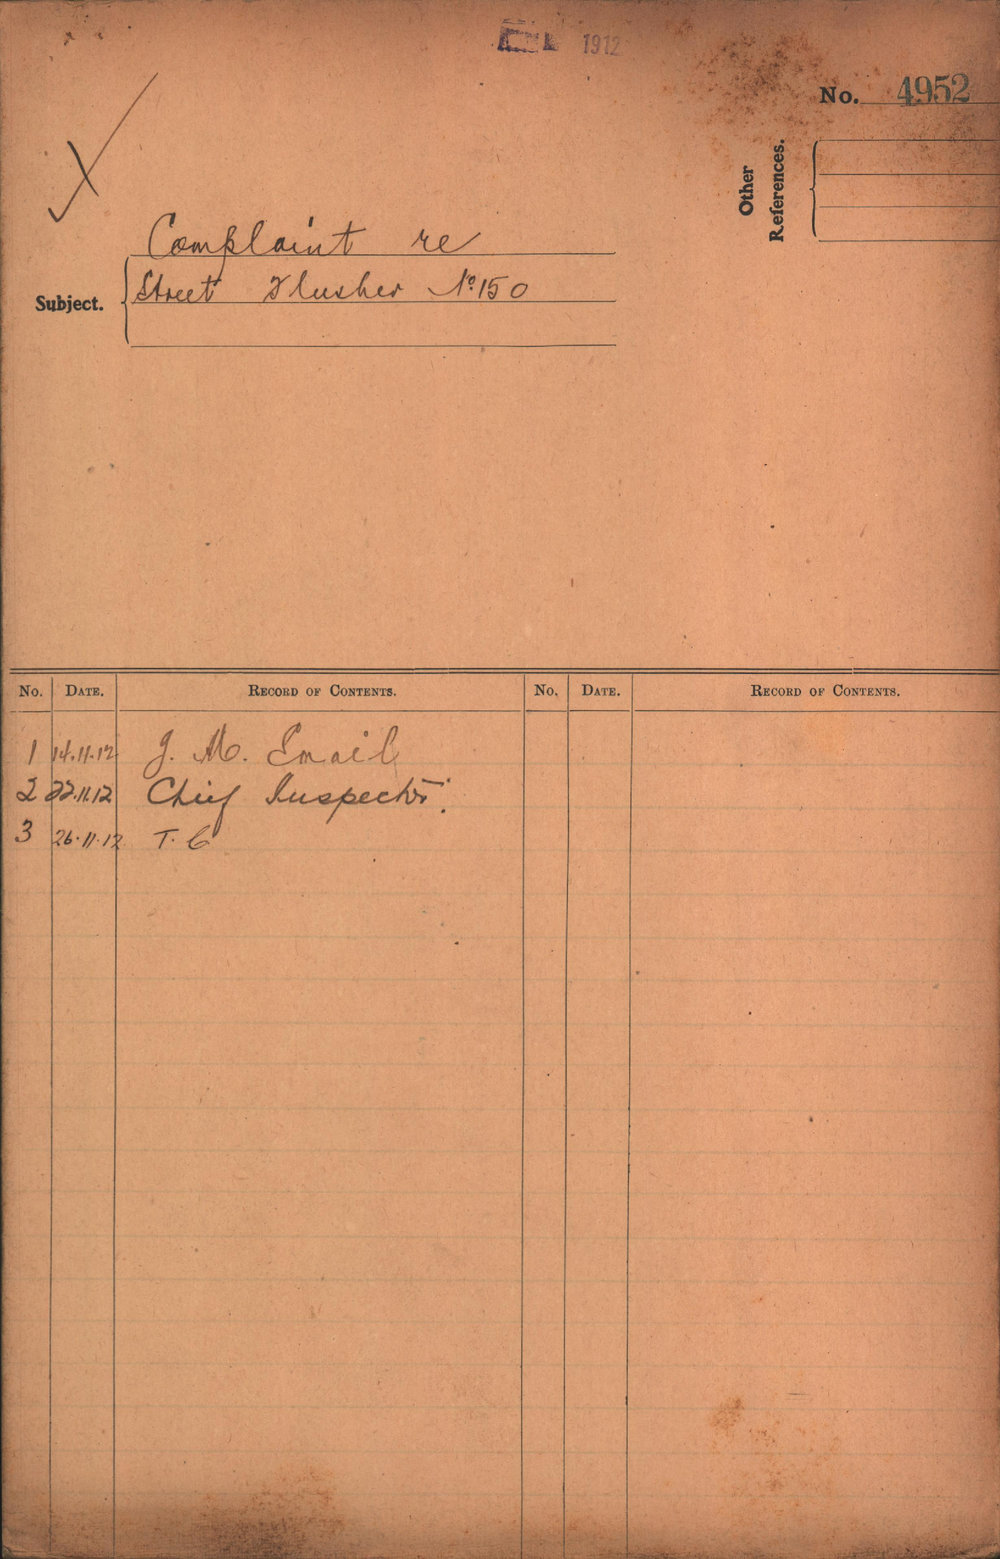 1912
No. 4952
Other References.
Complaint re
Subject. Street Flusher No. 150
No. DATE. RECORD OF CONTENTS. No. DATE. RECORD OF CONTENTS.
1 14.11.12 J. M. Email
2 22.11.12 Chief Inspector.
3 26.11.12 T. C